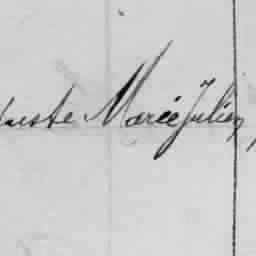 guste Marie Julien,